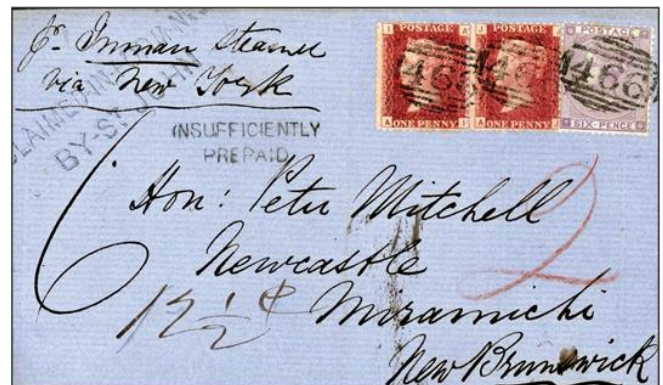 Pr Inman Steamer
via New York
CLAIMED-IN-ADVANCE
BY-ST JOHN
INSUFFICIENTLY
PREPAID
POSTAGE
I A
A ONE PENNY I
POSTAGE
J A
A ONE PENNY J
POSTAGE
SIX-PENCE
466
466
466
6
2
Hon: Peter Mitchell
Newcastle
12½ ¢
Miramichi
New Brunswick